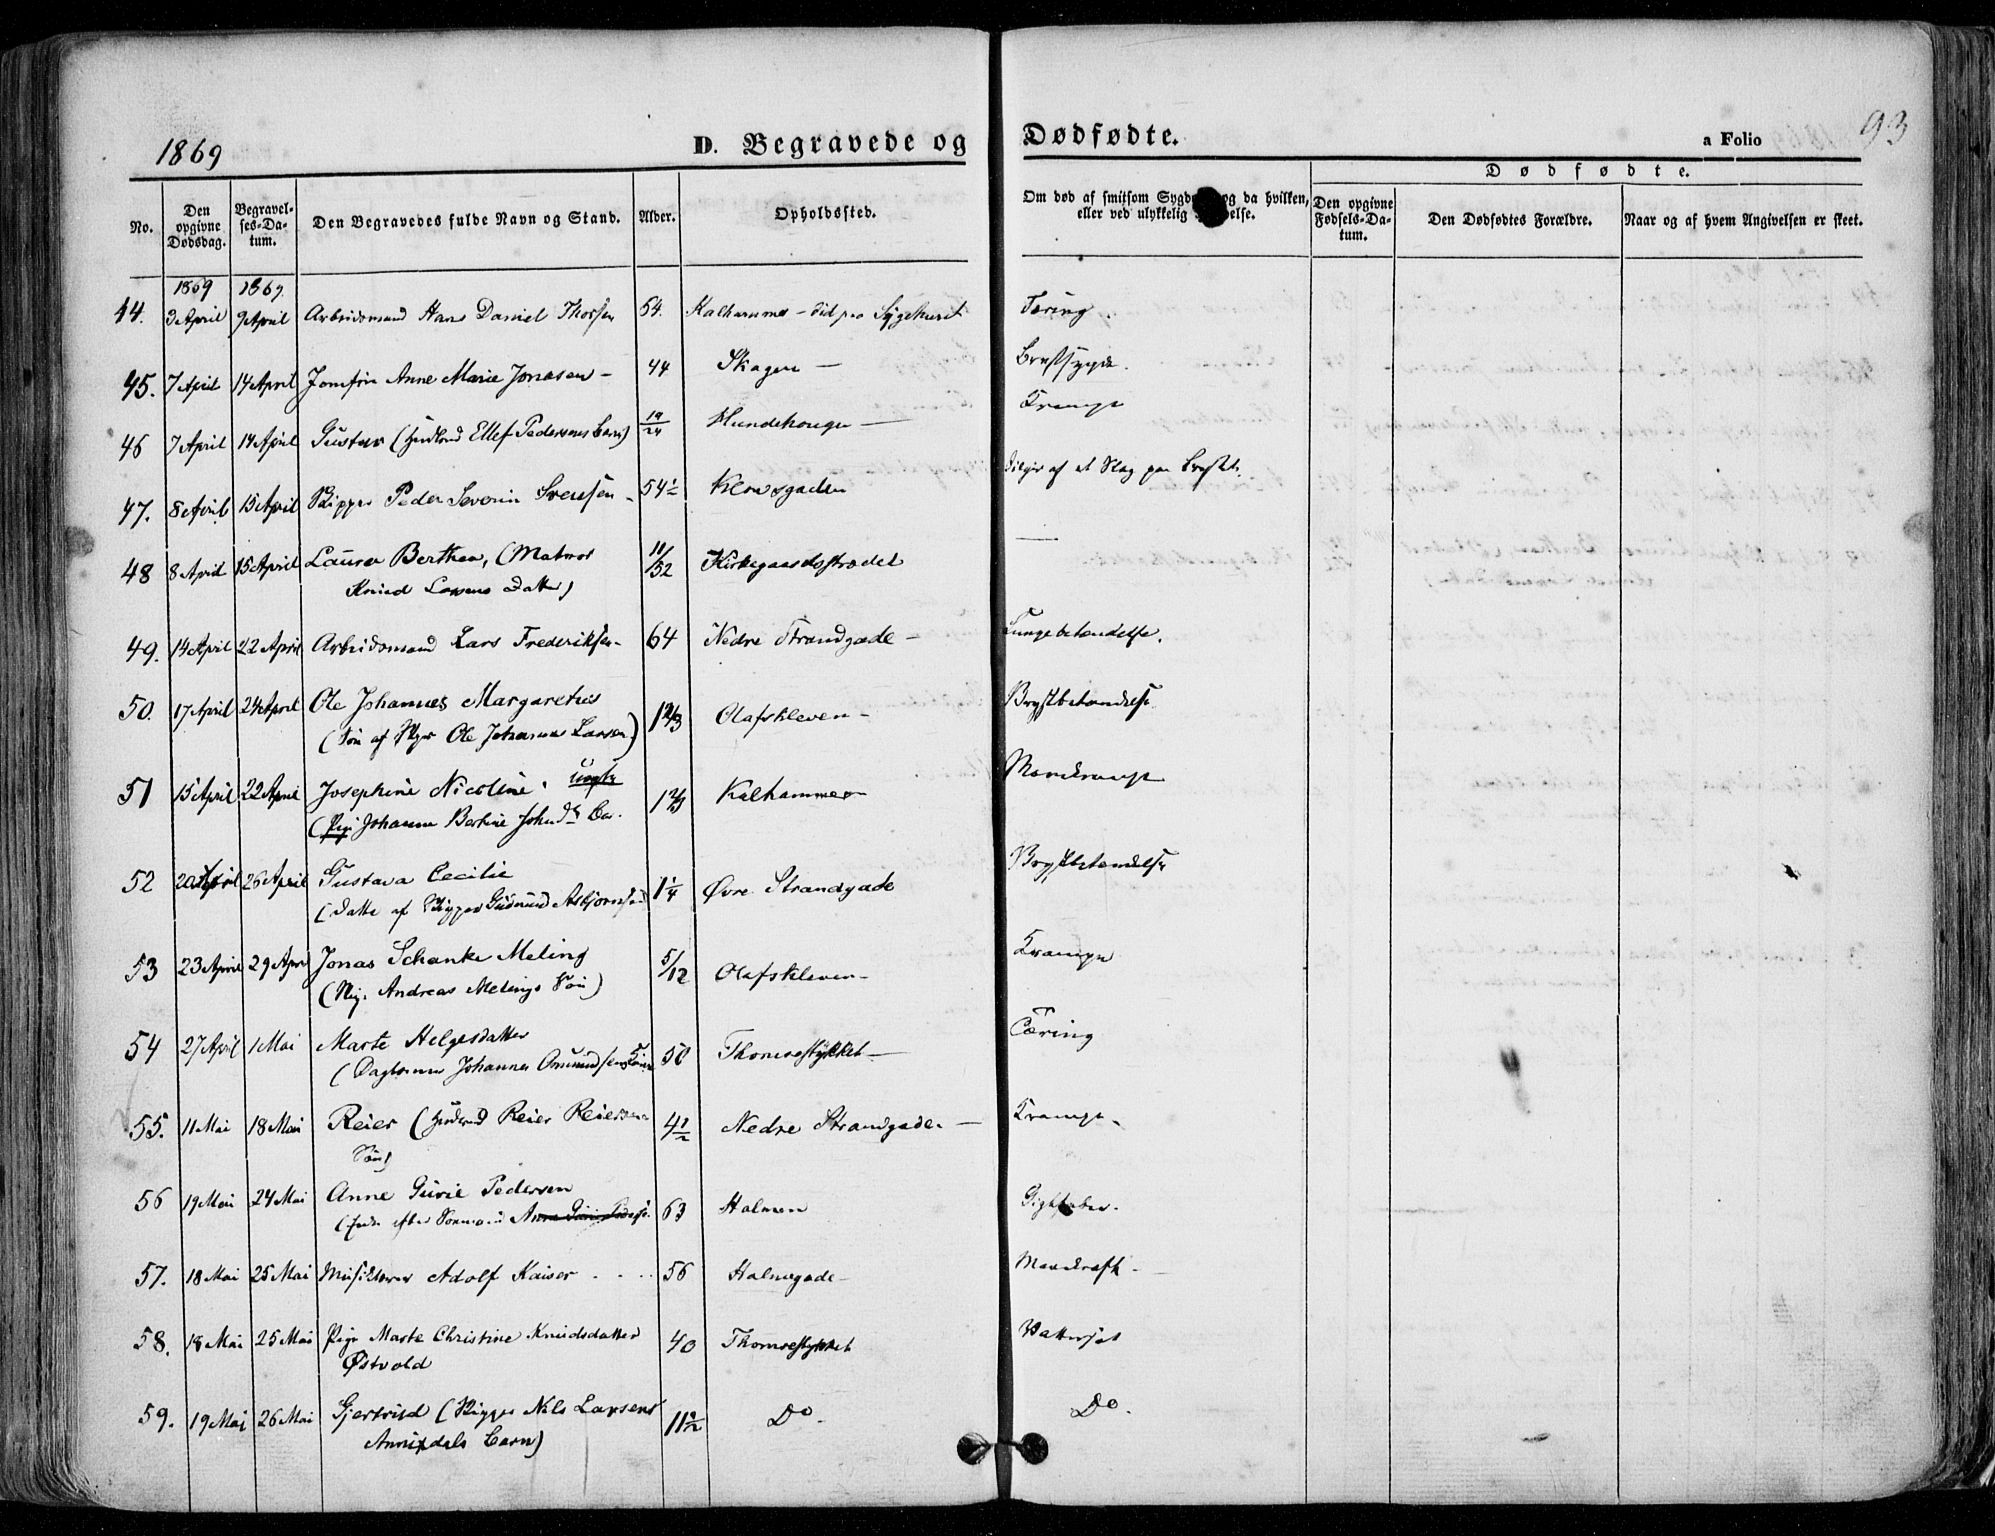 1869
D. Begravede og Dødfødte.
a Folio 93
No.
Den opgivne Dødsdag.
Begravelses-Datum.
Den Begravedes fulde Navn og Stand.
Alder.
Opholdssted.
Om død af smitsom og da hvilken, eller ved ulykkelig
Dødfødte.
Den opgivne Fødsels-Datum.
Den Dødfødtes Forældre.
Naar og af hvem Angivelsen er skeet.
1869 1869.
44. 3 April 9 April Arbeidsmand Hans Daniel Thorsen 54. Kalhammer - død paa Sygehuset Tæring.
45. 7 April 14 April Jomfru Anne Marie Jonasen - 44 Skagen — Brystsyge.
46 7 April 14 April Gustav ( Ellef Pedersens Barn) 19/24 Hundehougen — Krampe
47. 8 April 15 April Skipper Peder Severin Svensen - 54½ Klowsgaden af et Slag paa Brystet.
48 8 April 15 April Laura Berthea, (Matros 11/52 Kirkegaardsstrædet —
Knud Larsens Datter)
49. 14 April 22 April Arbeidsmand Lars Frederiksen - 64 Nedre Strandgade - Lungebetændelse.
50. 17 April 24 April Ole Johannes Margaretus Olafskleven - Brystbetændelse
(Søn af Ole Johannes Larsen)
51 15 April 22 April Josephine Nicoline. Kalhammer Mavekrampe
(Pige Johanne Bertine
52 20 April 26 April Gustava Cecilie 1¼ Øvre Strandgade Brystbetændelse
(Datter af Skipper Gudmund Asbjørnsen
53 23 April 29 April Jonas Schanke Meling 5/12 Olafskleven - Krampe
( Andreas Melings Søn)
54 27 April 1 Mai Marte Helgesdatter 50 Thomsestykket — Tæring
( Johannes Omundsens Kone
55. 11 Mai 18 Mai Reier ( Reier Reiersens 4½ Nedre Strandgade. — Krampe.
Søn)
56 19 Mai 24 Mai Anne Gurie Pedersen 63 Holmen Gigtfeber.
(Enke efter
57. 18 Mai 25 Mai Musiklærer Adolf Kaiser . . . . 56 Holmegade -
58. 18 Mai 25 Mai Pige Marte Christine Knudsdatter 40 Thomsestykket Vattersot
Østvold
59. 19 Mai 26 Mai Gjertrud (Skipper Nils Larsens 11½ Do. Do.
Barn)